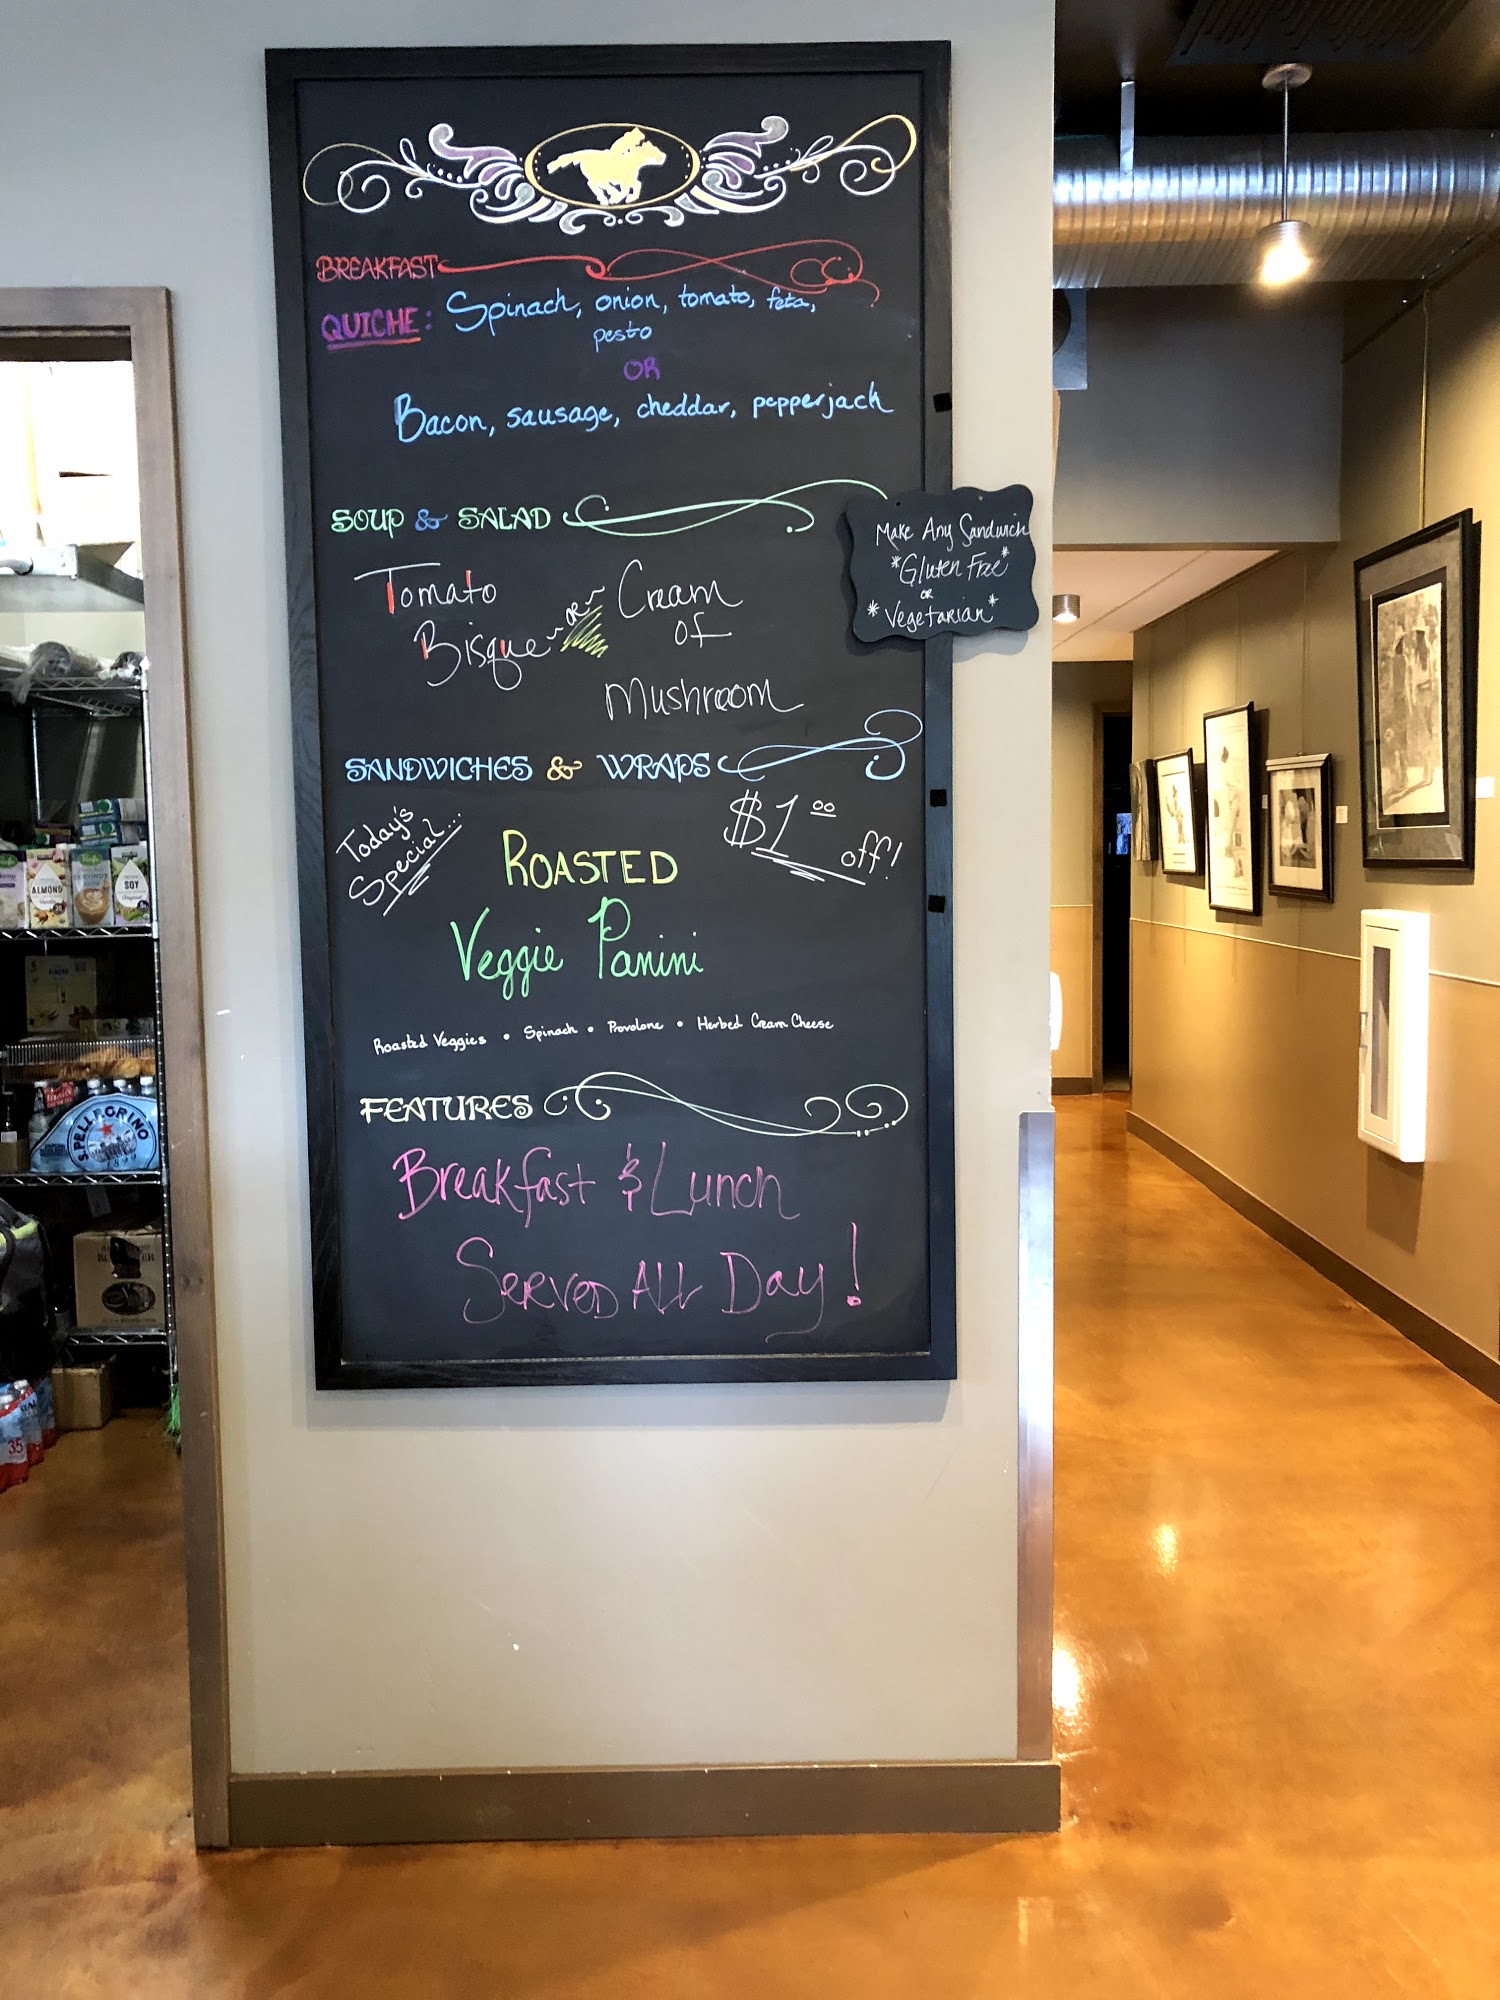 BREAKFAST
QUICHE: Spinach, onion, tomato, feta,
pesto
OR
Bacon, sausage, cheddar, pepperjack
SOUP & SALAD
Tomato
Bisque
~OR~
Cream
of
Mushroom
Make Any Sandwich
*Gluten Free*
OR
*Vegetarian*
SANDWICHES & WRAPS
Today's
Special...
$1.00
off!
ROASTED
Veggie Panini
Roasted Veggies • Spinach • Provolone • Herbed Cream Cheese
FEATURES
Breakfast & Lunch
SERVED ALL Day!
ALMOND
SOY
S.PELLEGRINO
1899
35